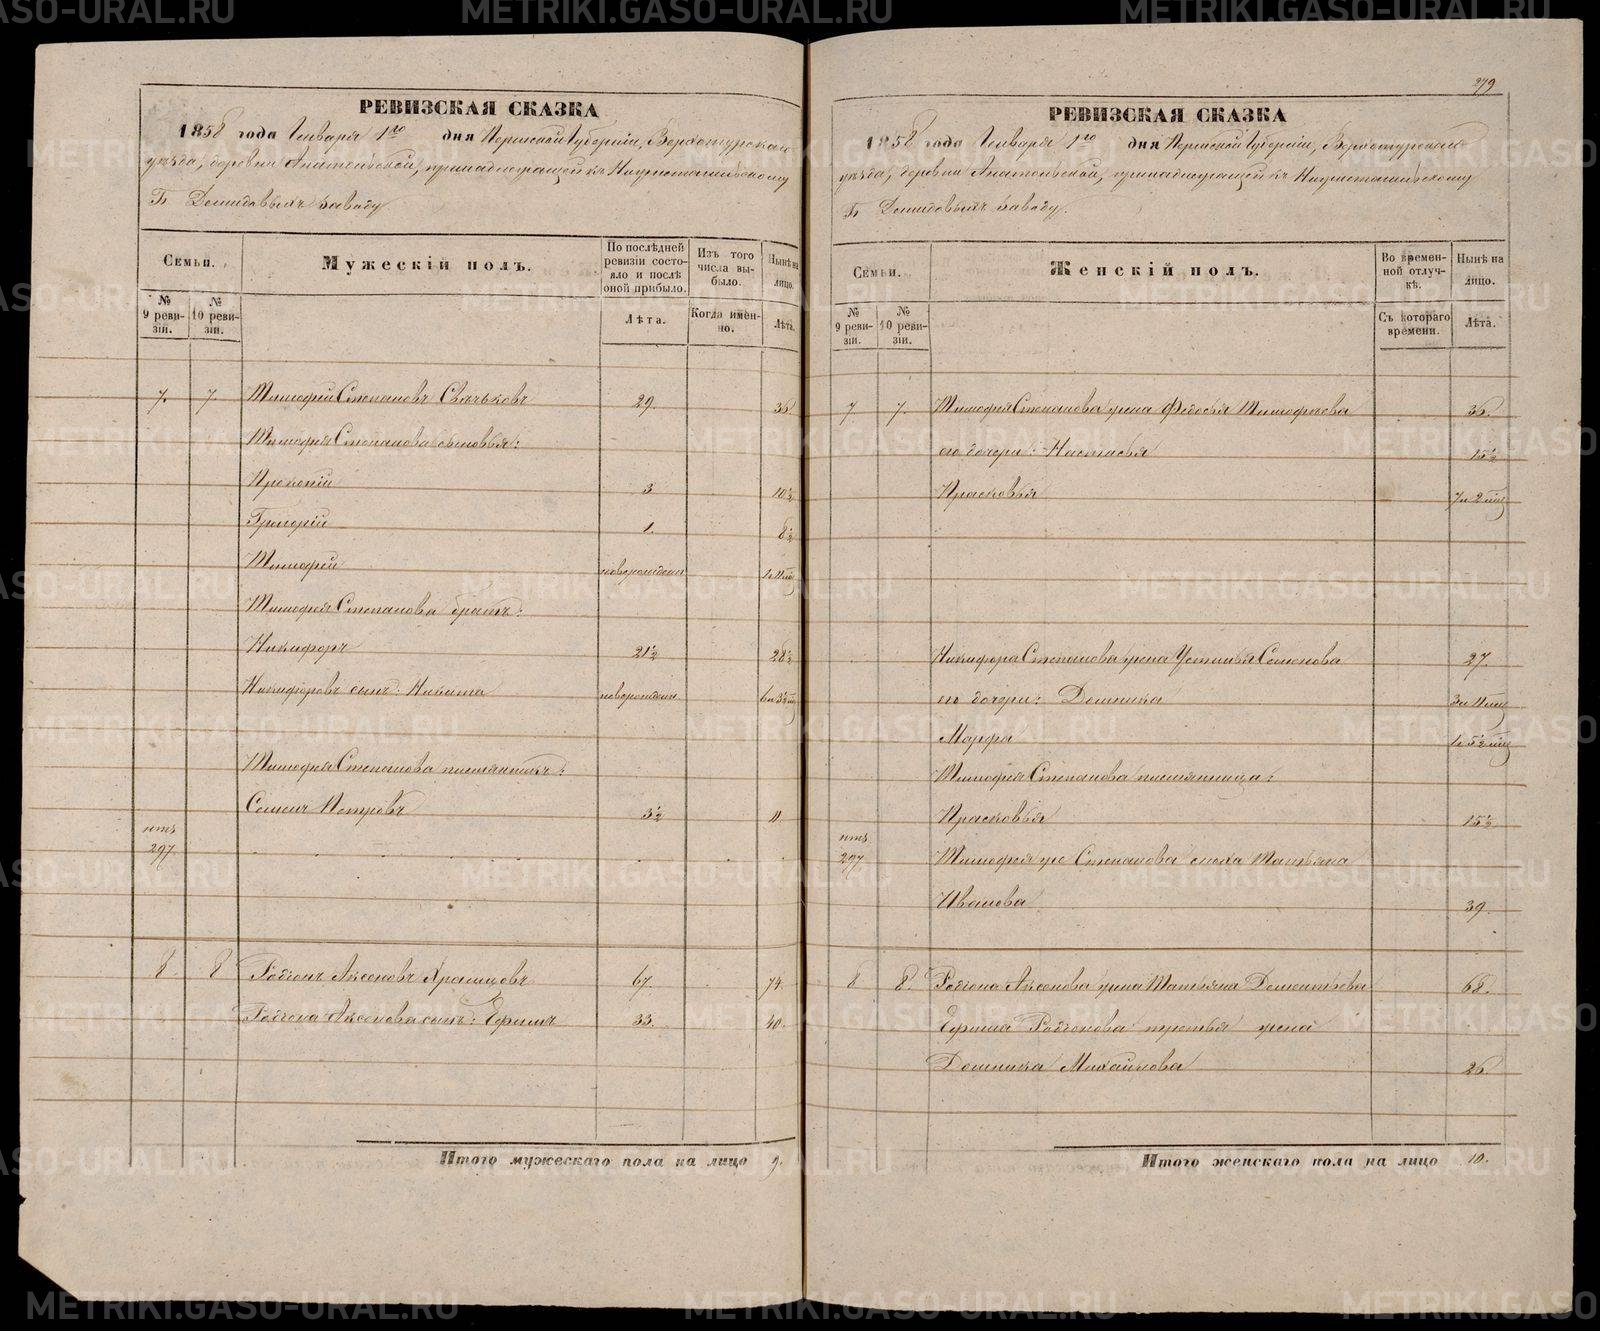 279
РЕВИЗСКАЯ СКАЗКА
1858 года Генваря 1го дня Пермской Губерніи, Верхотурскаго
уѣзда, деревни Анатольской, принадлежащей къ Нижнетагильскому
Гг. Демидовыхъ заводу
Семьи.
Мужескій полъ.
По послѣдней ревизіи состояло и послѣ оной прибыло.
Изъ того числа выбыло.
Нынѣ на лицо.
№ 9 ревизіи.
№ 10 ревизіи.
Лѣта.
Когда именно.
Лѣта.
7. 7. Тимофей Степановъ 29 36
Тимофея Степанова сыновья:
Прокопій 3 10½
Григорій 1. 8½
Тимофей новорожден
Тимофея Степанова братъ:
Никифоръ 21½ 28½
Никифоровъ сынъ: Никита новорожден.
Тимофея Степанова племянникъ:
Семенъ Петровъ 3½ 11
изъ
297
8 8 Родіонъ Аксеновъ Храмцовъ 67. 74.
Родіона Аксенова сынъ: Ефимъ 33. 40.
Итого мужескаго пола на лицо 9.
РЕВИЗСКАЯ СКАЗКА
1858 года Генваря 1го дня Пермской Губерніи, Верхотурскаго
уѣзда, деревни Анатольской, принадлежащей къ Нижнетагильскому
Гг. Демидовыхъ заводу.
Семьи.
Женскій полъ.
Во временной отлучкѣ.
Нынѣ на лицо.
№ 9 ревизіи.
№ 10 ревизіи.
Съ котораго времени.
Лѣта.
7 7. Тимофея Степанова жена Федосья Тимофѣева 36.
его дочери: Настасья 15½
Прасковья 7 и 2 мѣс
Никифора Степанова жена Устинья Семенова 27.
его дочери: Домника 3 и 11 мѣс
Марфа 1 и 5½ мѣс
Тимофея Степанова племянница:
Прасковья 15½
изъ
297 Тимофея же Степанова сноха Татьяна
Иванова 39.
8 8. Родіона Аксенова жена Татьяна Дементьева 68.
Ефима Родіонова третья жена
Домника Михайлова 26.
Итого женскаго пола на лицо 10.
METRIKI.GASO-URAL.RU